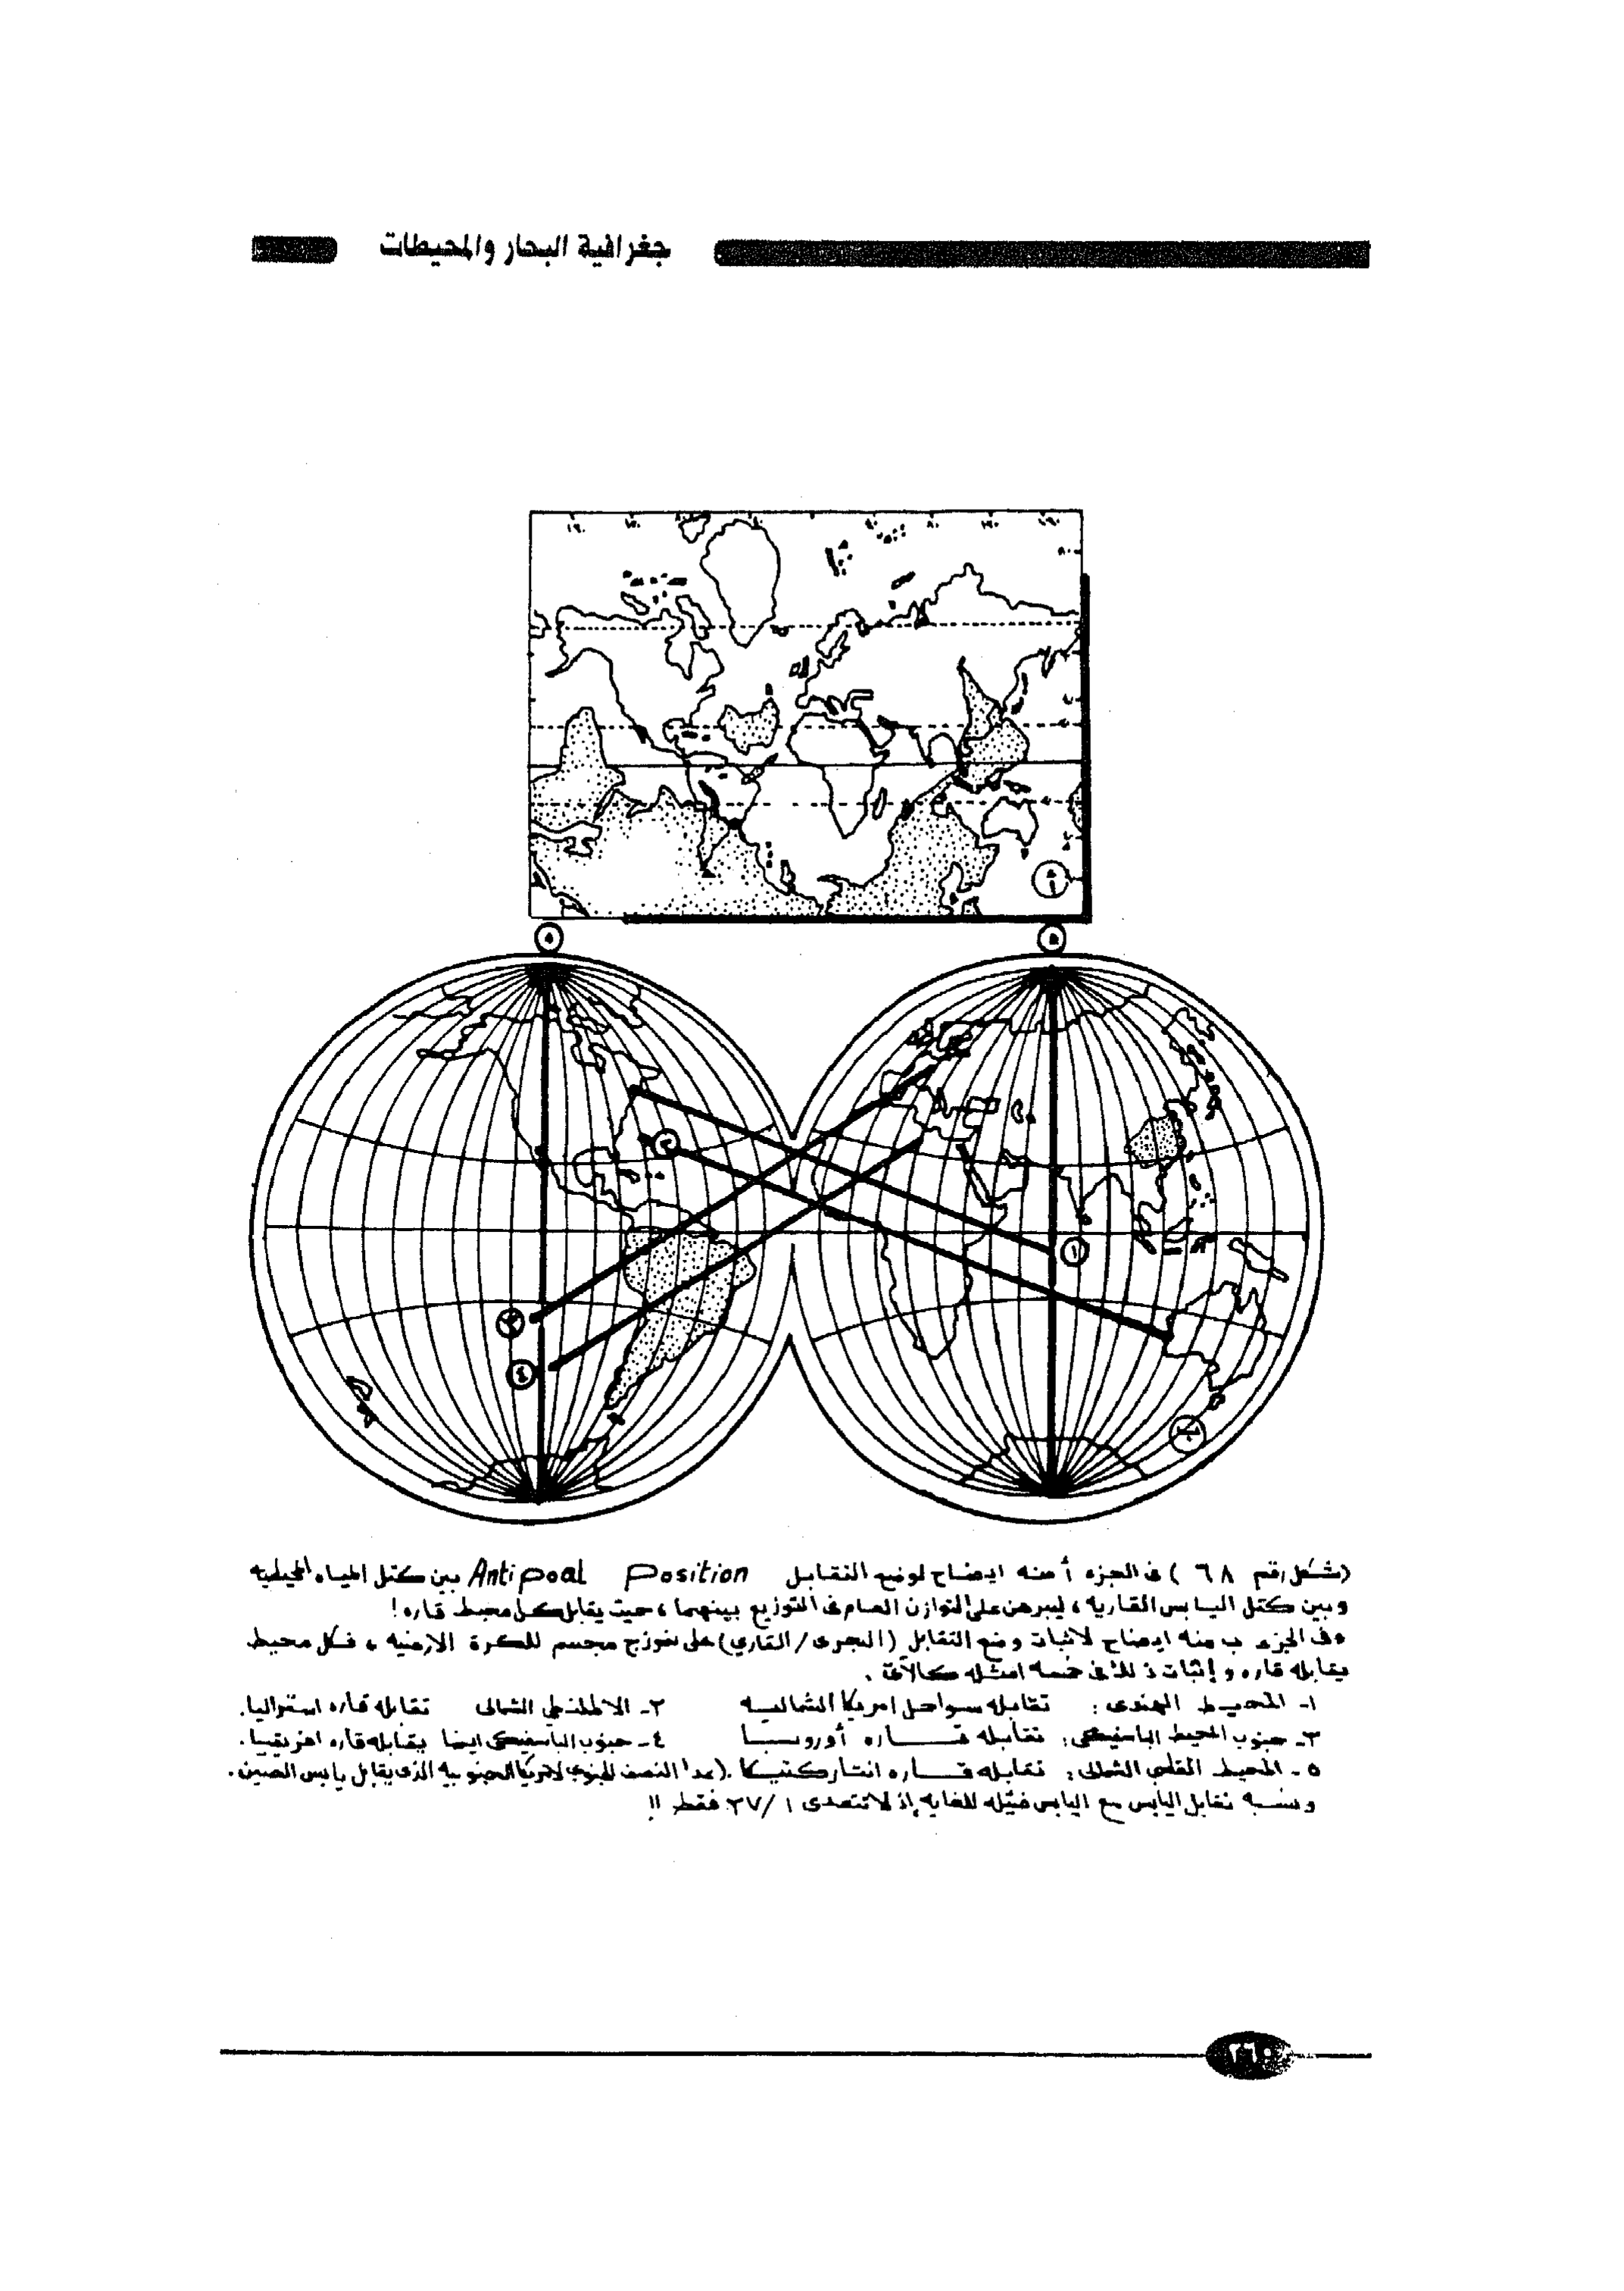 جغرافية البحار والمحيطات
أ
٥
٥
١
٢
٣
٤
ب
(شكل رقم ٦٨) فى الجزء أ منه ايضاح لوضع التقابل Antipoal Position بين كتل المياه المحيطيه
وبين كتل اليابس القاريه ، ليبرهن على التوازن العام فى التوزيع بينهما ، حيث يقابل كل محيط قاره !
وفى الجزء ب منه ايضاح لاثبات وضع التقابل (البحرى / القاري) على نموزج مجسم للكرة الارضيه ، فكل محيط
يقابله قاره و إثبات ذلك فى خمسه امثله كالآتى .
١- المحيط الهندى : تقابله سواحل امريكا الشماليه ٢- الاطلنطي الشمالى تقابله قاره استراليا.
٣- جنوب المحيط الباسفيكى : تقابله قاره أوروبا ٤- جنوب الباسفيكى ايضا يقابله قاره افريقيا.
٥- المحيط القطبى الشمالى : تقابله قاره انتاركتيكا .(عدا النصف الجنوبي لامريكا الجنوبيه الذى يقابل يابس الصين.
ونسبه تقابل اليابس مع اليابس ضئيله للغايه إذ لا تتعدى ١ / ٢٧ فقط !!
٢٦٠